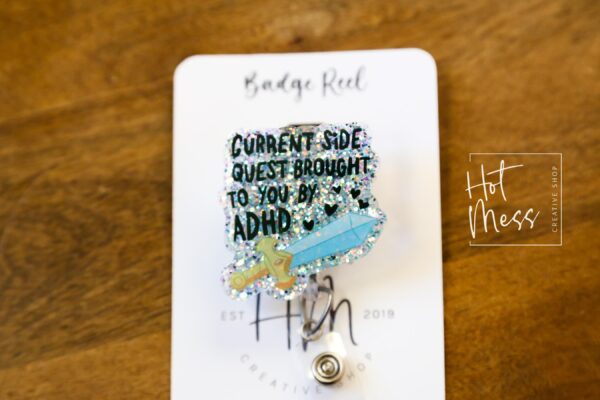 Badge Reel
CURRENT SIDE
QUEST BROUGHT
TO YOU BY
ADHD
EST
2019
CREATIVE SHOP
Hot
Mess
CREATIVE SHOP